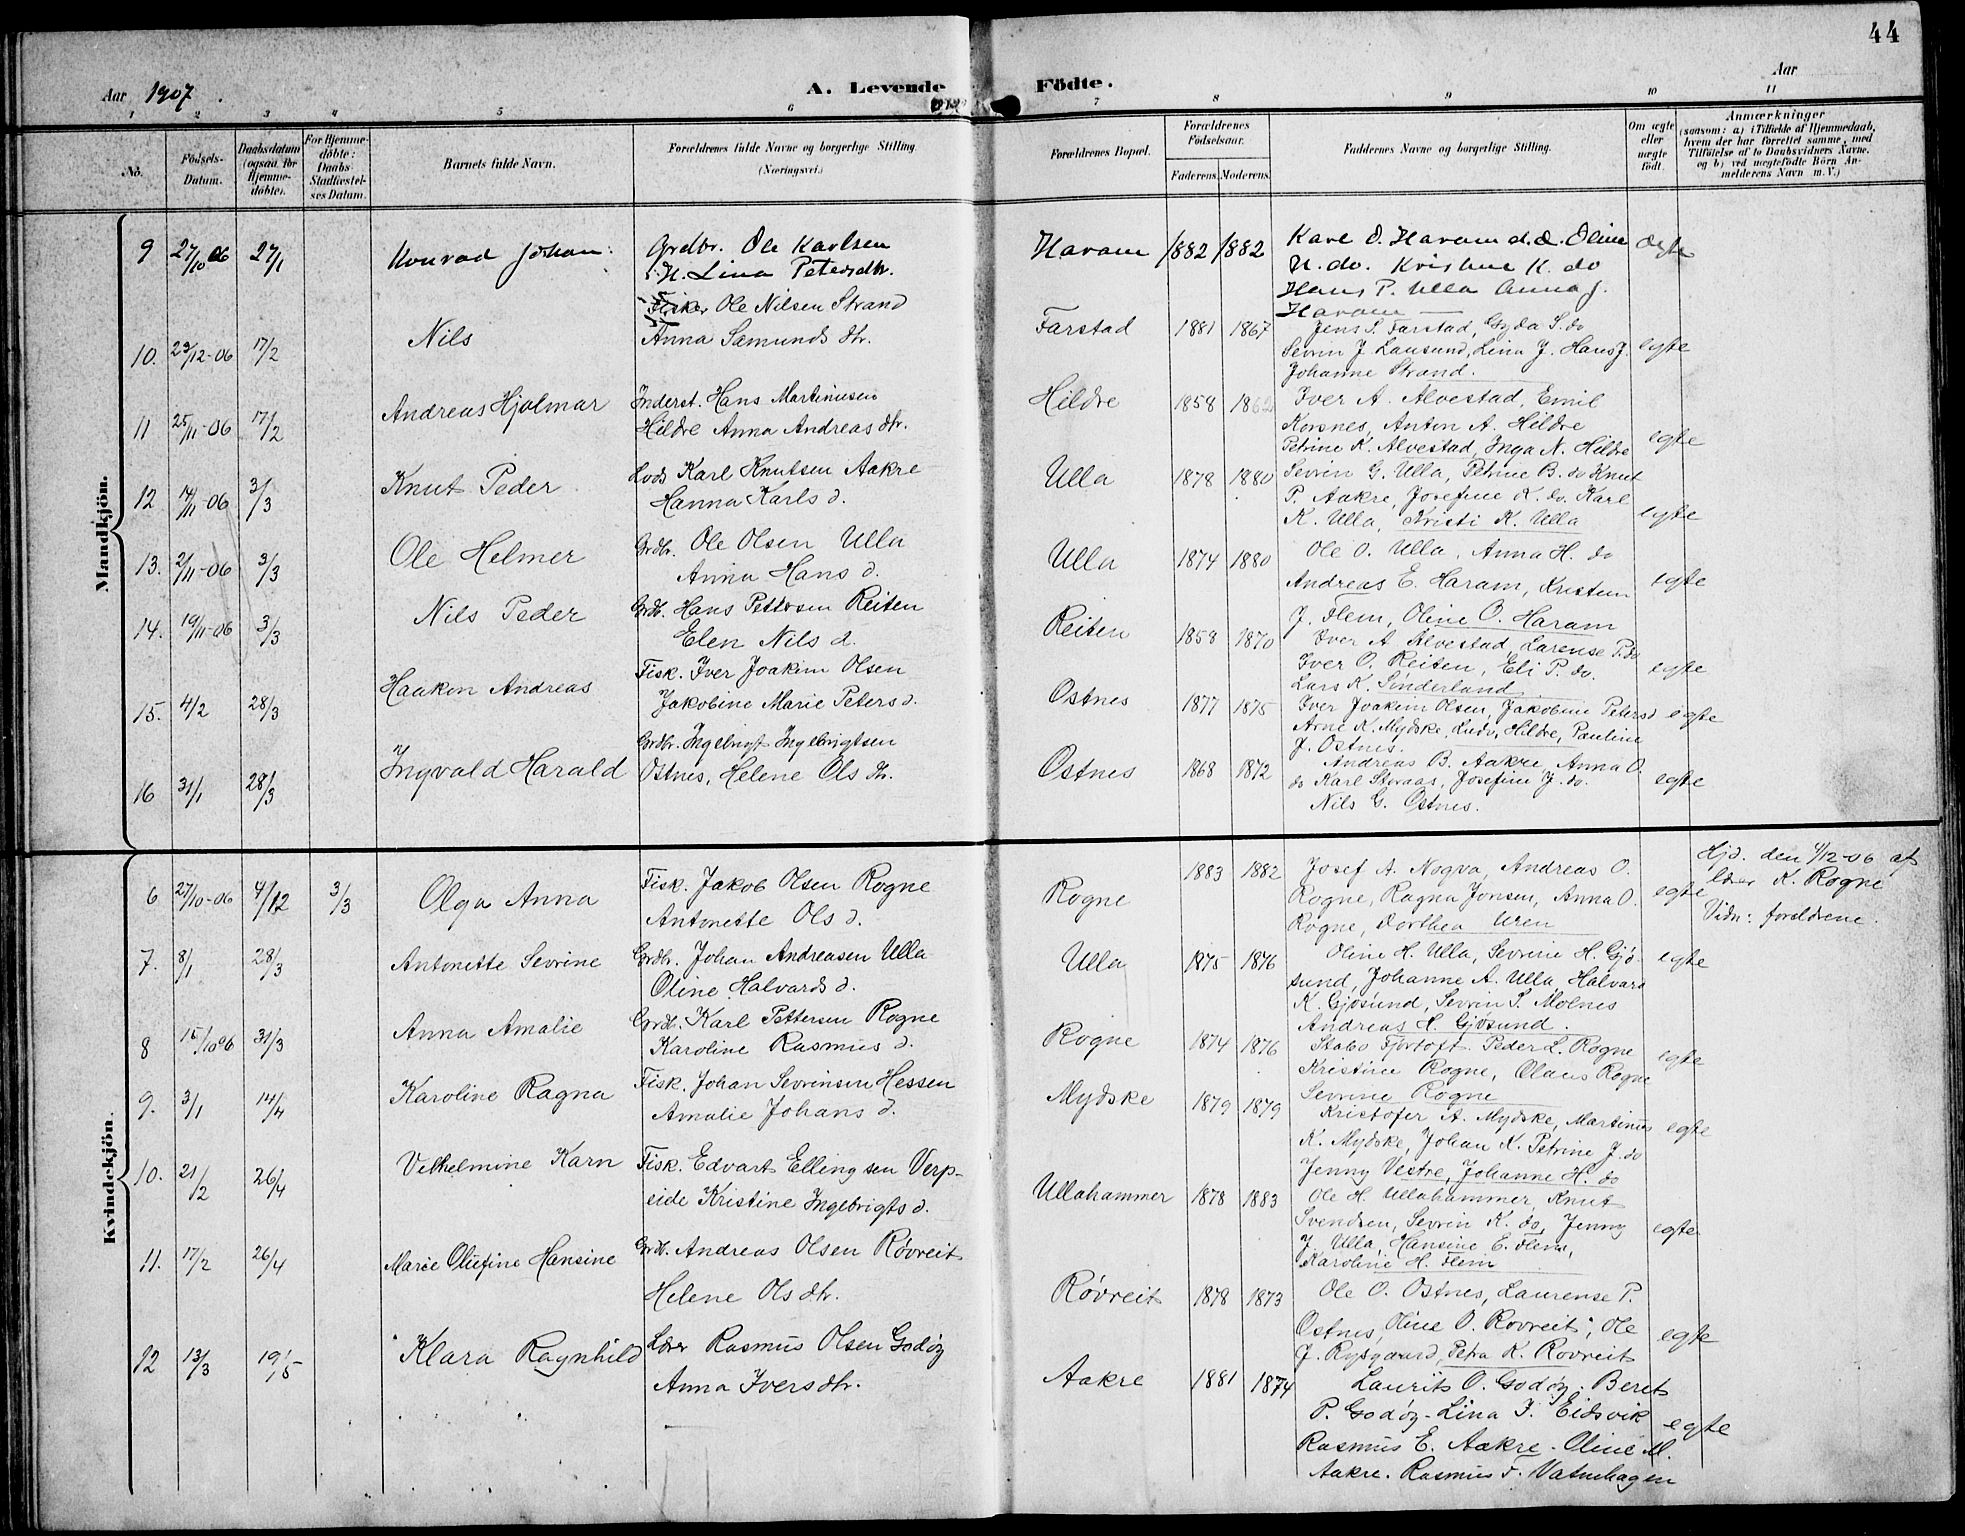 44
Aar 1907.
A. Levende Födte.
Aar
1 2 3 4 5 6 7 8 9 10 11
No.
Födsels-Datum.
Daabsdatum (ogsaa for Hjemme-döbte).
For Hjemme-döbte: Daabs Stadfæstel-ses Datum.
Barnets fulde Navn.
Forældrenes fulde Navne og borgerlige Stilling (Næringsvei.)
Forældrenes Bopæl.
Forældrenes Födselsaar.
Faderens. Moderens.
Faddernes Navne og borgerlige Stilling.
Om ægte eller uægte födt.
Anmærkninger
(saasom: a) i Tilfælde af Hjemmedaab, hvem der har forrettet samme, med Tilföielse af to Daabsvidners Navne. og b) ved uægtefödte Börn An-melderens Navn m. V.)
Mandkjön.
9 27/10 06 27/1 Konrad Johan. Grdbr. Ole Karlsen
H. Lina Petersdtr. Haram 1882 1882 Karl O. Haram d.æ. Oline
N. do. Kristine K. do
Hans P. Ulla Anna J.
Haram ægte
10. 23/12-06 17/2 Nils Fisker Ole Nilsen Strand
Anna Samunds dtr. Farstad 1881 1867 Jens S. Farstad, Gyda S. do
Sevrin J Lausund, Lina J. Hans J.
Johanne Strand. egte
11 25/11-06 17/2 Andreas Hjalmar Inderst. Hans Martinusen
Hildre Anna Andreas dtr. Hildre 1858 1862 Iver A. Alvestad, Emil
Korsnes, Anton A. Hildre
Petrine K. Alvestad, Inga N. Hildre egte
12 14/11-06 3/3 Knut Peder Lods Karl Knutsen Aakre
Hanna Karls d. Ulla 1878 1880 Sevrin G. Ulla, Petrine B. do Knut
P. Aakre, Josefine K. do. Karl
K. Ulla, Kristi K. Ulla egte
13. 2/11-06 3/3 Ole Helmer Grdbr. Ole Olsen Ulla
Anna Hans d. Ulla 1874 1880 Ole O. Ulla, Anna H. do
Andreas E. Haram, Kristen
J. Flem, Oline O. Haram egte
14. 19/11-06 3/3 Nils Peder Grdb. Hans Pettersen Reiten
Elen Nils d. Reiten 1858 1870 Iver A Alvestad, Larense P. do
Iver O. Reiten, Eli P. do.
Lars K. Sönderland egte
15. 4/2 28/3 Haakon Andreas Fisk. Iver Joakim Olsen
Jakobine Marie Peters d. Ostnes 1877 1875 Iver Joakim Olsen, Jakobine Petersd
Arne K. Mydske, Ludv. Hildre, Pauline
J. Ostnes. egte
16 31/1 28/3 Ingvald Harald Grdbr. Ingebrigt Ingebrigtsen
Ostnes, Helene Ols dtr. Ostnes 1868 1872 Andreas B. Aakre, Anna O.
do Karl Straas, Josefine J. do.
Nils G. Ostnes. egte
Kvindekjön.
6 27/10-06 4/12 3/3 Olga Anna Fisk. Jakob Olsen Rogne
Antonette Ols d. Rogne 1883 1882 Josef A. Nogva, Andreas O.
Rogne, Ragna Jonsen, Anna O.
Rogne, Dorthea Uren egte Hjd. den 4/12-06 af
lærer K. Rogne
Vidn: foreldrene.
7. 8/1 28/3 Antonette Sevrine Grdbr. Johan Andreasen Ulla
Oline Halvards d. Ulla 1875 1876 Oline H. Ulla, Sevrine H. Gjø-
sund, Johanne A. Ulla, Halvard
K. Gjøsund, Sevrin S. Molnes
Andreas H. Gjøsund. egte
8 15/10 06 31/3 Anna Amalie Grdb. Karl Pettersen Rogne
Karoline Rasmus d. Rogne 1874 1876 Stabo Fjørtoft. Peder L. Rogne
Kristine Rogne, Olaus Rogne
Sevrine Rogne egte
9. 3/1 14/4 Karoline Ragna Fisk. Johan Sevrinsen Hessen
Amalie Johans d. Mydske 1879 1879 Kristofer A. Mydske, Martinus
K. Mydske, Johan K. Petrine J. do
Jenny Vestre, Johanne H. do egte
10. 21/2 26/4 Vilhelmine Karn Fisk. Edvart Ellingsen Verp-
side Kristine Ingebrigts d. Ullahammer 1878 1883 Ole H. Ullahammer, Knut
Svendsen, Sevrin K. do, Jenny
J. Ulla, Hansine E. Flem,
Karoline H. Flem egte
11. 17/2 26/4 Marie Olufine Hansine Grdb. Andreas Olsen Røvreit
Helene Ols dtr. Røvreit 1878 1873 Ole O. Ostnes, Laurense P.
Ostnes, Oline O. Rovreit, Ole
J. Rysgaard, Petra K. Rovreit egte
12 13/3 19/5 Klara Ragnhild Lærer Rasmus Olsen Godøy
Anna Iversdtr. Aakre 1881 1874 Laurits O. Godøy. Beret
P. Godøy - Lina I. Eidsvik
Rasmus E. Aakre - Oline M.
Aakre. Rasmus F. Vatnehagen egte